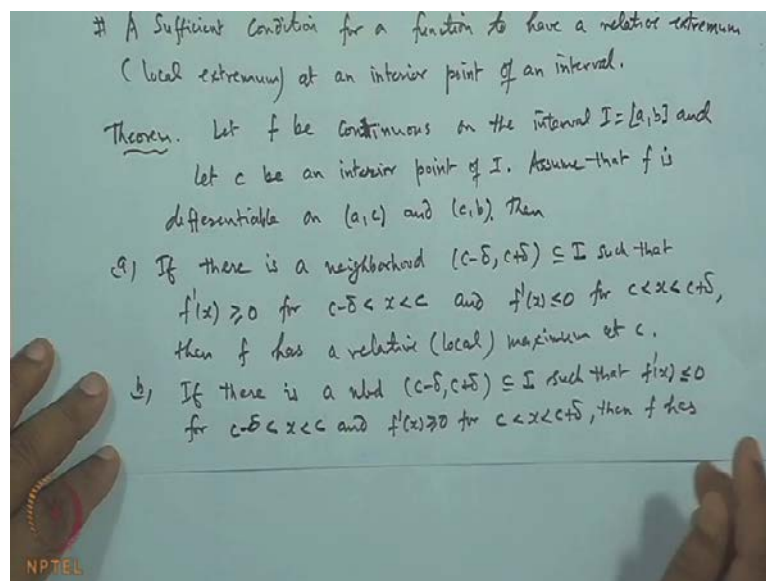 # A Sufficient Condition for a function to have a relative extremum
(local extremum) at an interior point of an interval.
Theorem. Let f be Continuous on the interval I = [a,b] and
let c be an interior point of I. Assume that f is
differentiable on (a,c) and (c,b). Then
a) If there is a neighborhood (c-δ, c+δ) ⊆ I such that
f'(x) ≥ 0 for c-δ < x < c and f'(x) ≤ 0 for c < x < c+δ,
then f has a relative (local) maximum at c.
b) If there is a nbd (c-δ, c+δ) ⊆ I such that f'(x) ≤ 0
for c-δ < x < c and f'(x) ≥ 0 for c < x < c+δ, then f has
NPTEL